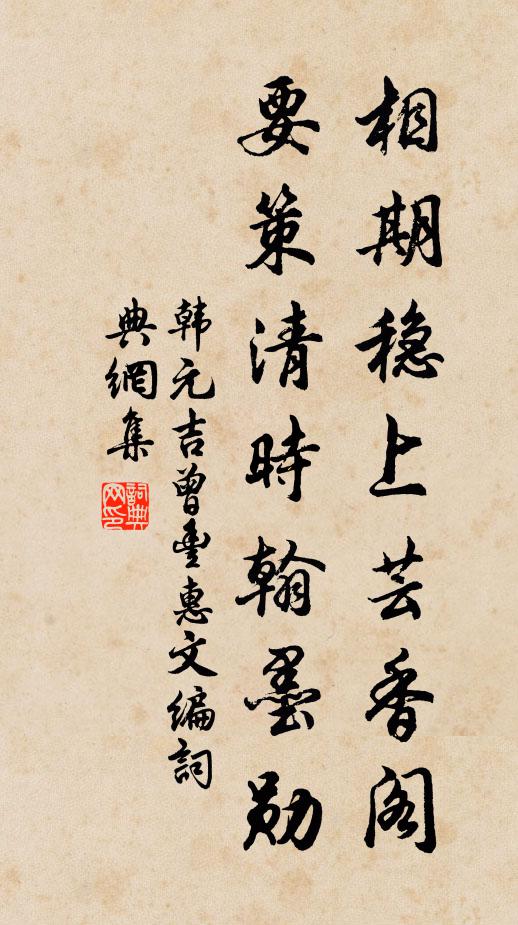 相期稳上芸香阁
要策清時翰墨勋
韩元吉曾豊惠文编詞
典網集
詞典
网印